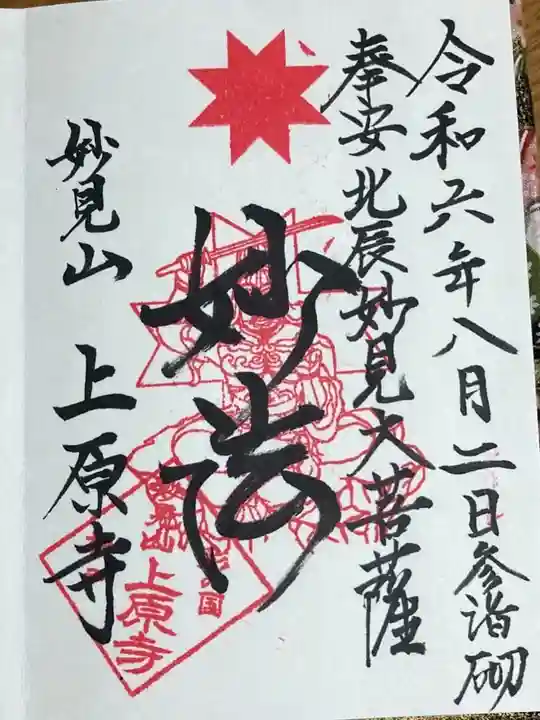 令和六年八月二日参詣砌
奉安北辰妙見大菩薩
妙法
妙見山 上原寺
国
妙見山 上原寺